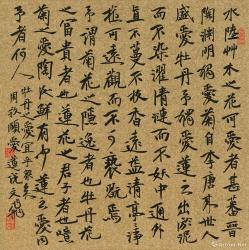 水陸艸木之花可愛者甚蕃晉
陶渊明獨愛菊自李唐來世人
盛愛牡丹予獨愛蓮之出淤泥
而不染濯清漣而不妖中通外
直不蔓不枝香遠益清亭亭淨
植可遠觀而不可褻玩焉
予謂菊花之隱逸者也牡丹花
之富貴者也蓮花之君子者也噫
菊之愛陶後鮮有聞蓮之愛同
予者何人牡丹之愛宜乎眾矣
周敦頤愛蓮說